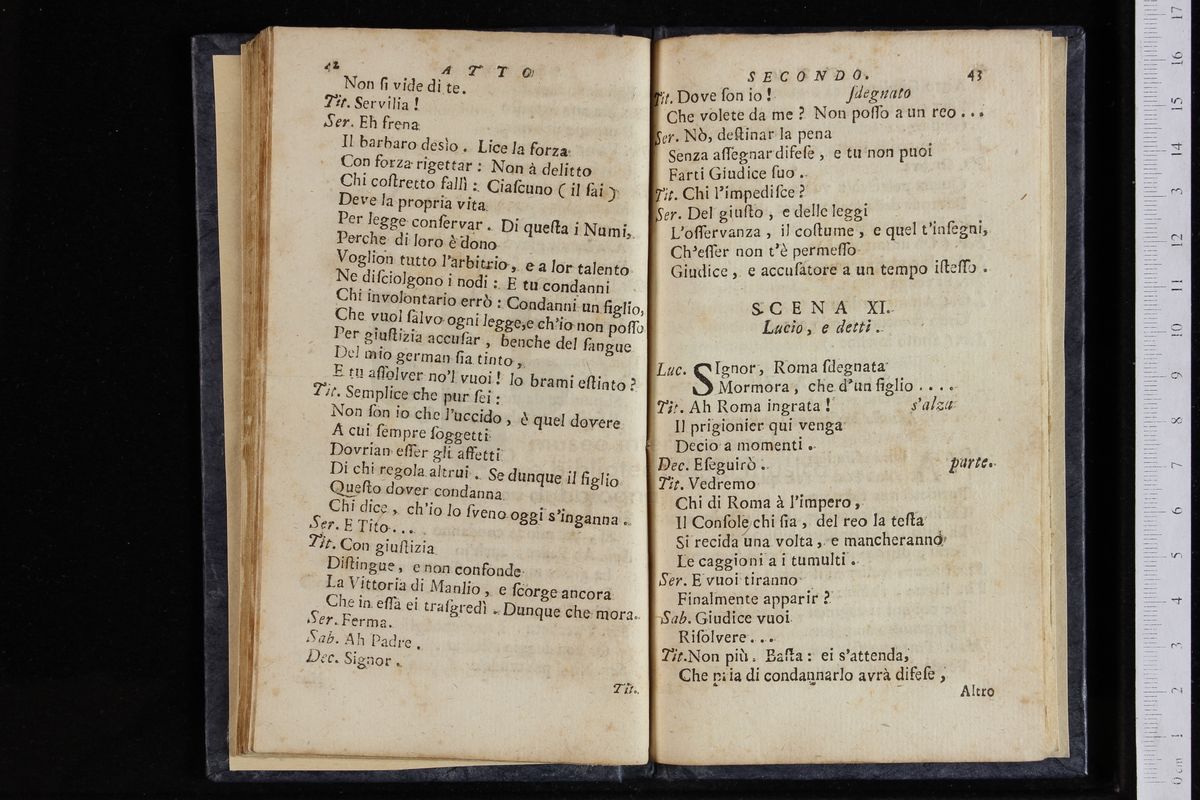 42 ATTO
Non ſi vide di te.
Tit. Servilia !
Ser. Eh frena
Il barbaro desìo . Lice la forza
Con forza rigettar : Non à delitto
Chi coſtretto fallì : Ciaſcuno ( il ſai )
Deve la propria vita
Per legge conſervar . Di queſta i Numi,
Perche di loro è dono
Voglion tutto l'arbitrio , e a lor talento
Ne diſciolgono i nodi : E tu condanni
Chi involontario errò : Condanni un figlio,
Che vuol ſalvo ogni legge,e ch'io non poſſo
Per giuſtizia accuſar , benche del ſangue
Del mio german ſia tinto ,
E tu aſſolver no'l vuoi ! lo brami eſtinto ?
Tit. Semplice che pur ſei :
Non ſon io che l'uccido , è quel dovere
A cui ſempre ſoggetti
Dovrian eſſer gli affetti
Di chi regola altrui . Se dunque il figlio
Queſto dover condanna
Chi dice , ch'io lo ſveno oggi s'inganna .
Ser. E Tito . . .
Tit. Con giuſtizia
Diſtingue , e non confonde
La Vittoria di Manlio , e ſcorge ancora
Che in eſſa ei traſgredì . Dunque che mora.
Ser. Ferma.
Sab. Ah Padre .
Dec. Signor .
Tit.
SECONDO. 43
Tit. Dove ſon io ! ſdegnato
Che volete da me ? Non poſſo a un reo . . .
Ser. Nò, deſtinar la pena
Senza aſſegnar difeſe , e tu non puoi
Farti Giudice ſuo .
Tit. Chi l'impediſce ?
Ser. Del giuſto , e delle leggi
L'oſſervanza , il coſtume , e quel t'inſegni,
Ch'eſſer non t'è permeſſo
Giudice , e accuſatore a un tempo iſteſſo .
SCENA XI.
Lucio, e detti .
Luc. SIgnor, Roma ſdegnata
Mormora, che d'un figlio . . . .
Tit. Ah Roma ingrata ! s'alza
Il prigionier qui venga
Decio a momenti .
Dec. Eſeguirò . parte.
Tit. Vedremo
Chi di Roma à l'impero ,
Il Conſole chi ſia , del reo la teſta
Si recida una volta , e mancheranno
Le caggioni a i tumulti .
Ser. E vuoi tiranno
Finalmente apparir ?
Sab. Giudice vuoi
Riſolvere . . .
Tit.Non più . Baſta : ei s'attenda,
Che pria di condannarlo avrà difeſe ,
Altro
0 cm 1 2 3 4 5 6 7 8 9 10 11 12 13 14 15 16 17